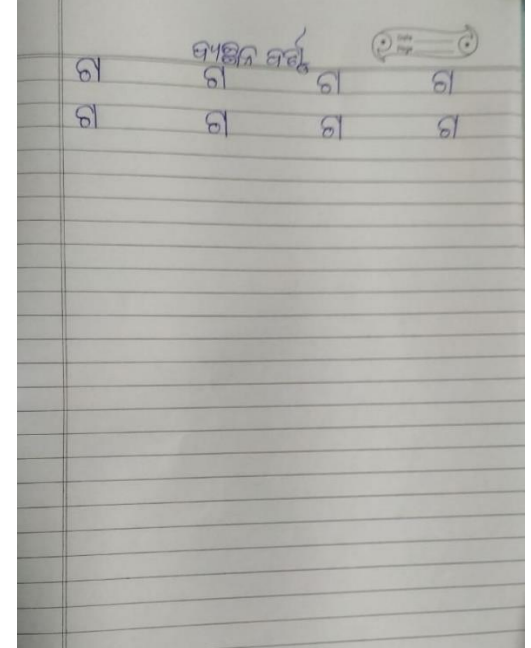 ବ୍ୟଞ୍ଜନ ବର୍ଣ୍ଣ
ଗ ଗ ଗ ଗ
ଗ ଗ ଗ ଗ